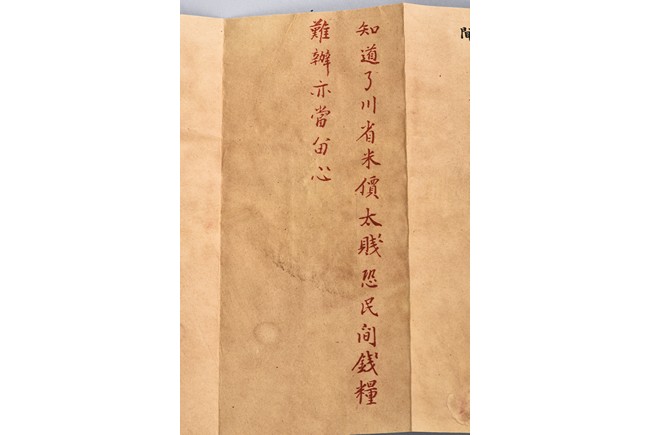 知道了川省米價太賤恐民间錢糧
難辦亦當留心